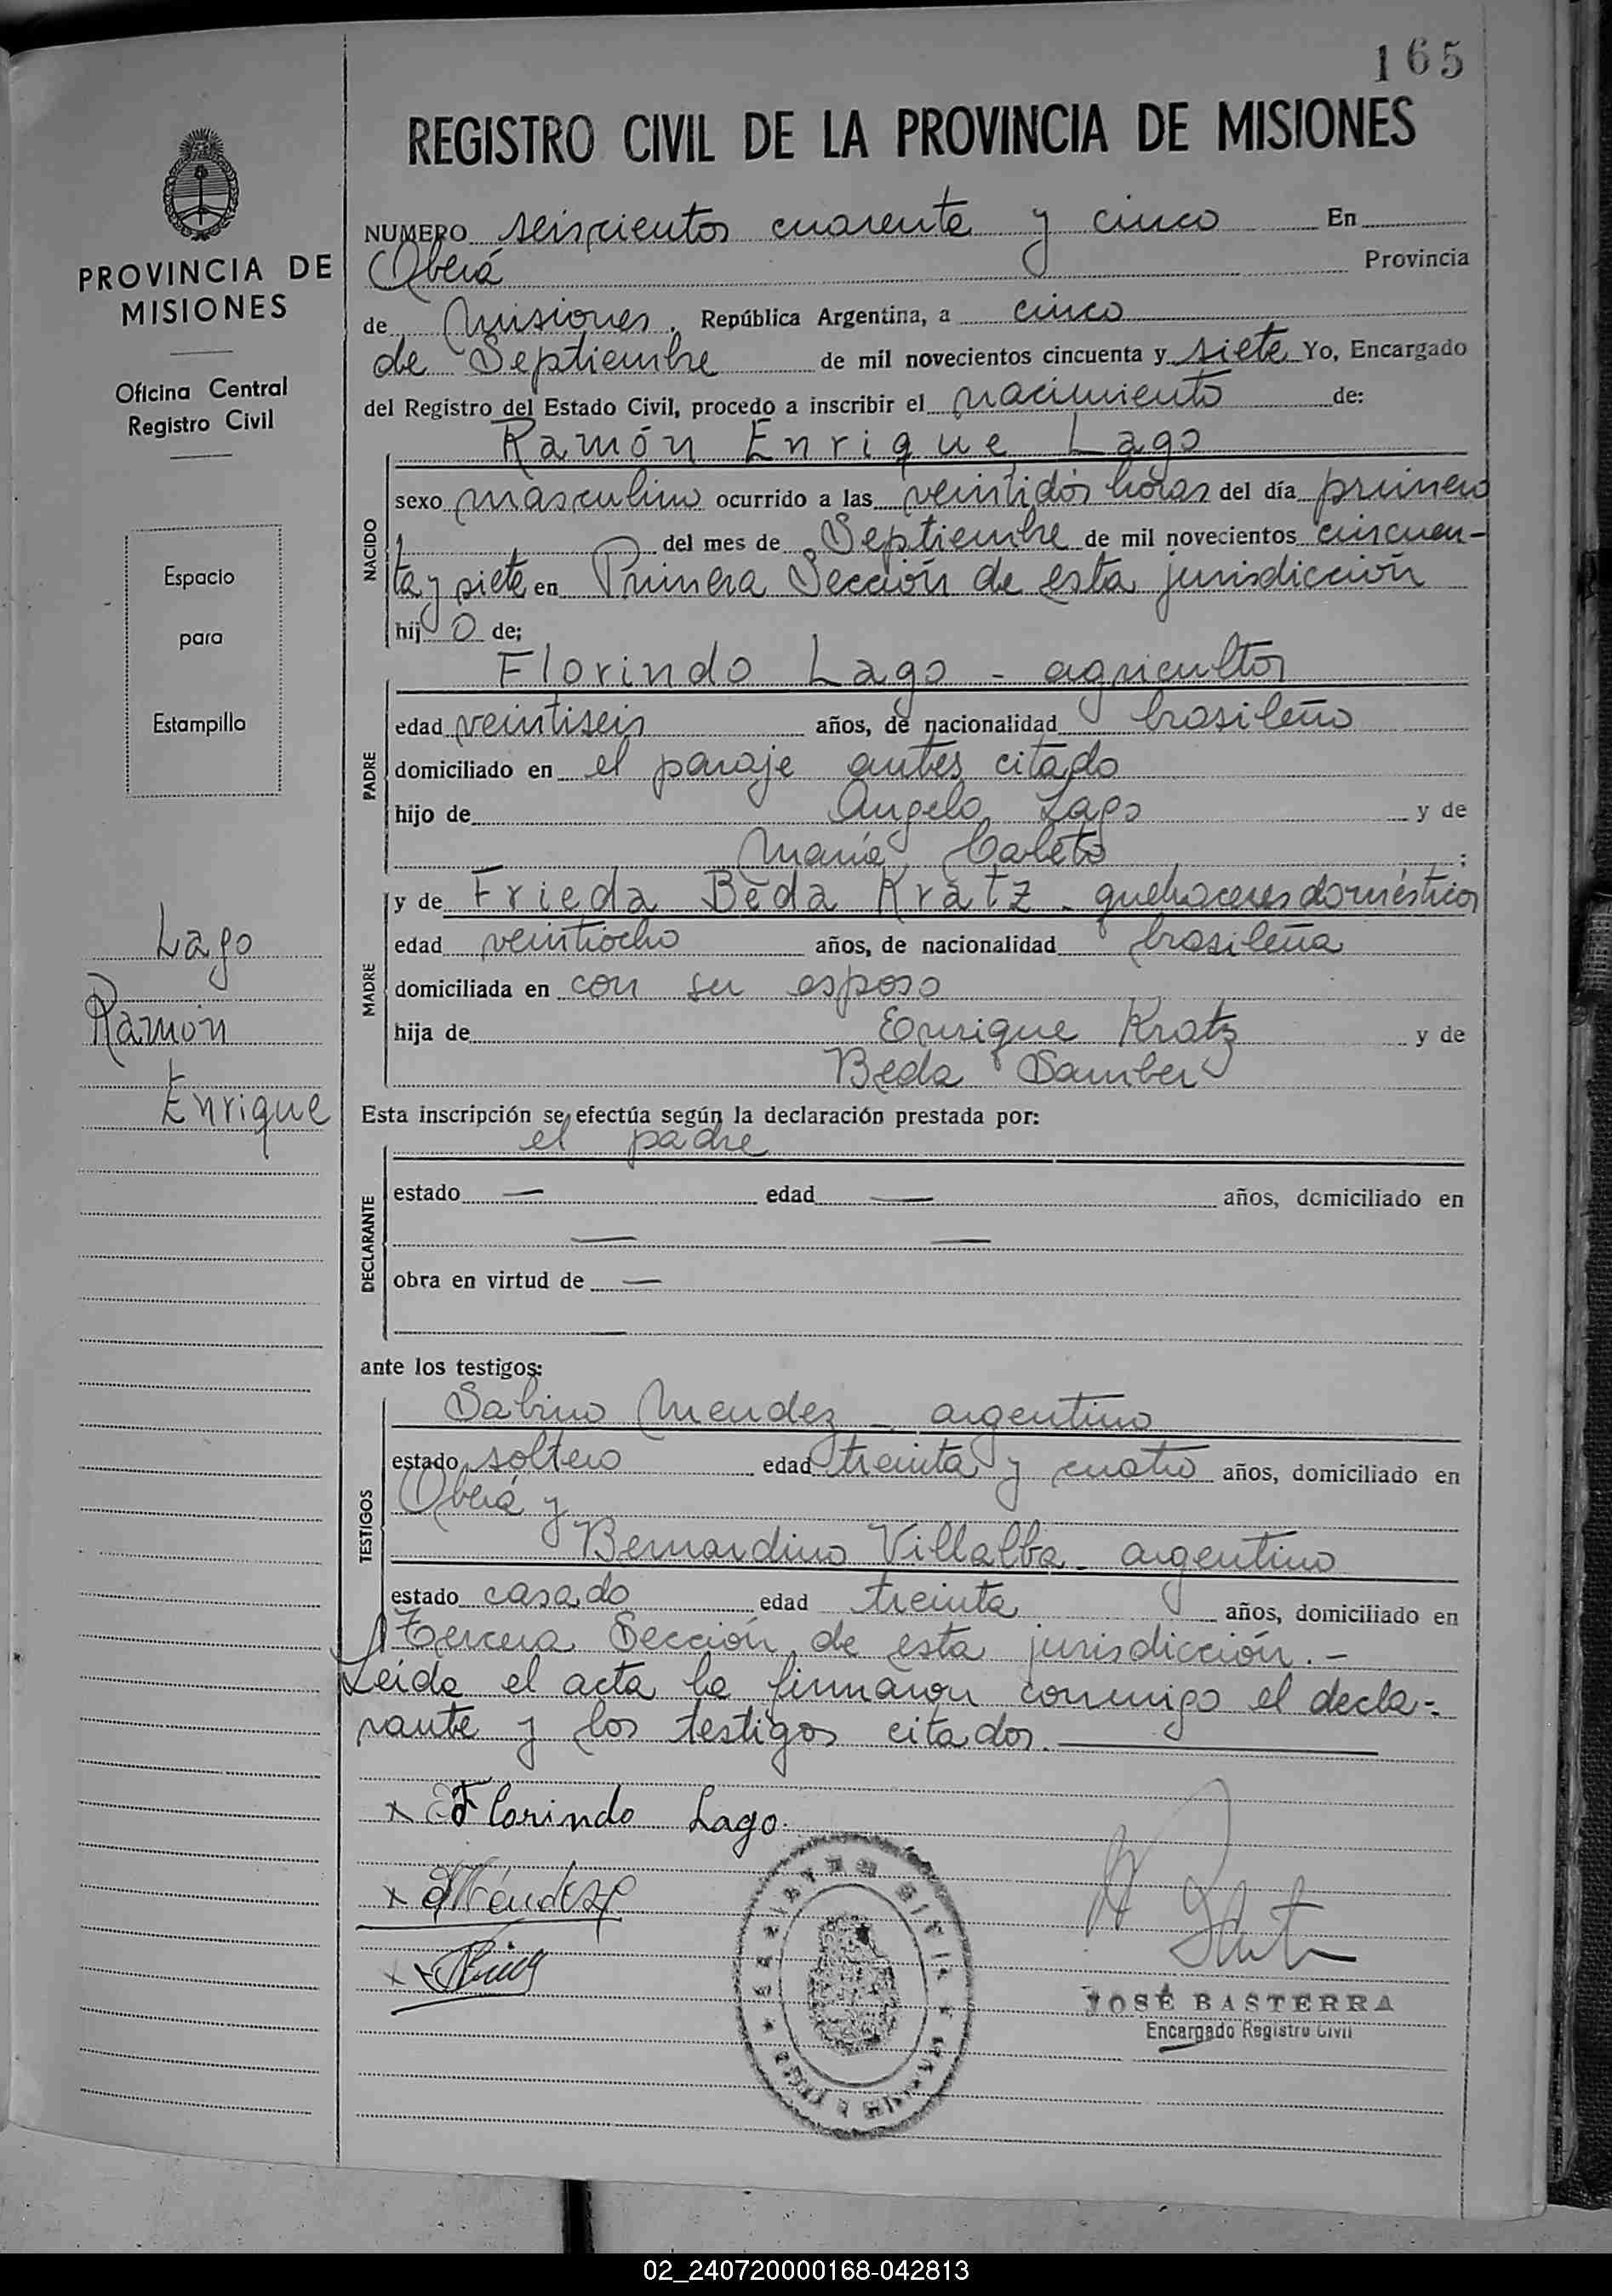 165
REGISTRO CIVIL DE LA PROVINCIA DE MISIONES
PROVINCIA DE
MISIONES
Oficina Central
Registro Civil
Espacio
para
Estampilla
Lago
Ramón
Enrique
NUMERO seiscientos cuarenta y cinco En
Oberá Provincia
de Misiones, República Argentina, a cinco
de Septiembre de mil novecientos cincuenta y siete Yo, Encargado
del Registro del Estado Civil, procedo a inscribir el nacimiento de:
Ramón Enrique Lago
NACIDO
sexo masculino ocurrido a las veintidós horas del día primero
del mes de Septiembre de mil novecientos cincuen-
ta y siete en Primera Sección de esta jurisdicción
hij o de;
Florindo Lago - agricultor
PADRE
edad veintiseis años, de nacionalidad brasileño
domiciliado en el paraje antes citado
hijo de Angelo Lago y de
María Caleto ;
y de Frieda Beda Kratz - quehaceres domésticos
MADRE
edad veintiocho años, de nacionalidad brasileña
domiciliada en con su esposo
hija de Enrique Kratz y de
Beda Samber
Esta inscripción se efectúa según la declaración prestada por:
el padre
DECLARANTE
estado — edad — años, domiciliado en
— —
obra en virtud de —
ante los testigos:
Sabino Mendez - argentino
TESTIGOS
estado soltero edad treinta y cuatro años, domiciliado en
Oberá y
Bernardino Villalba - argentino
estado casado edad treinta años, domiciliado en
Tercera Sección de esta jurisdicción.-
Leída el acta la firmaron conmigo el decla-
rante y los testigos citados.
x Florindo Lago.
x Méndez
JOSÉ BASTERRA
Encargado Registro Civil
02_240720000168-042813